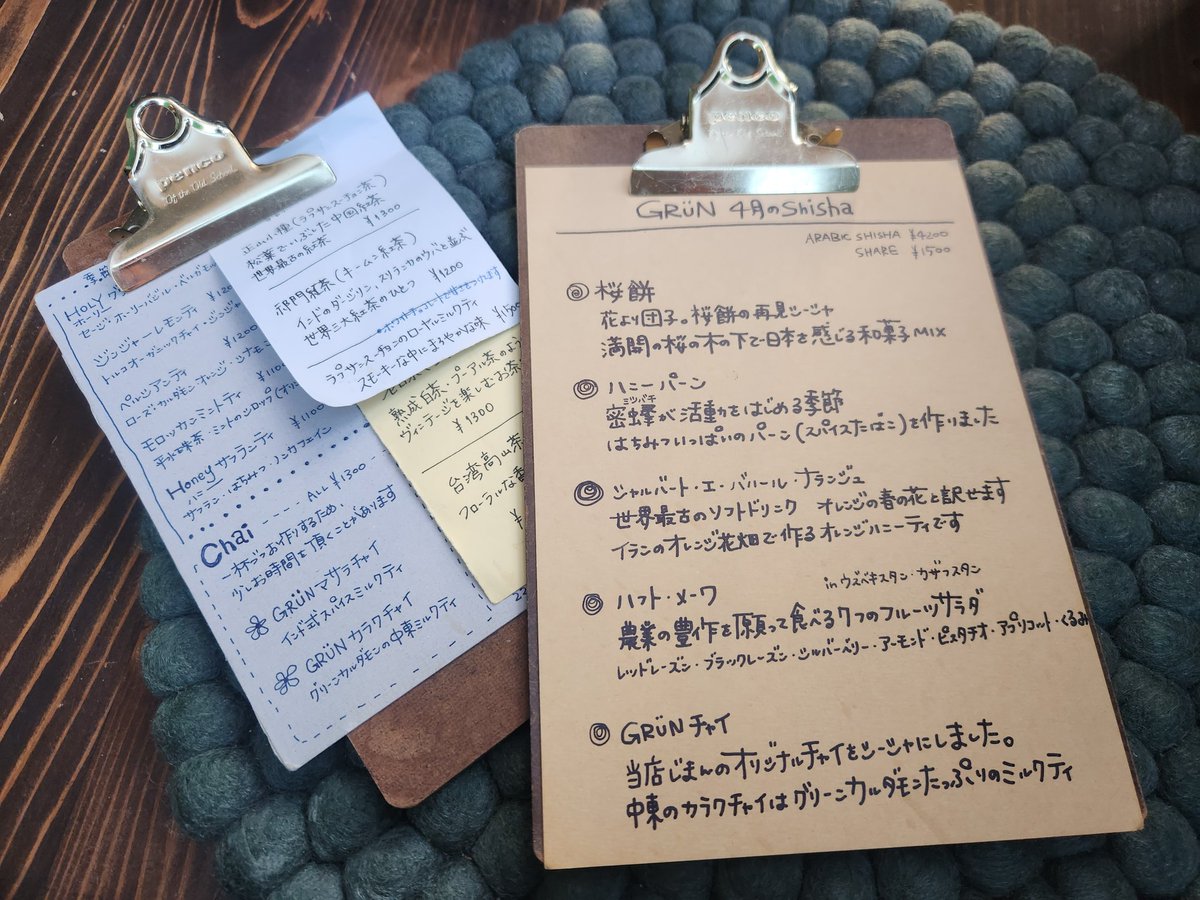 penco
Of the Old School
正山小種(ラプサンスーチョン茶)
松葉でいぶした中国紅茶
世界最古の紅茶 ¥1300
祁門紅茶(キームン紅茶)
インドのダージリン、スリランカのウバと並ぶ
世界三大紅茶のひとつ ¥1200
ラプサンスーチョンのロイヤルミルクティ
スモーキーな中にまろやかな味 ¥1500
熟成白茶・プーアル茶のよう
ヴィンテージを楽しむお茶
¥1300
台湾高山茶
フローラルな香
¥
季節
HOLY
セージ・ホーリーバジル・ベルガモ
ジンジャーレモンティ ¥120
トルコオーガニックチャイ・ジンジャ
ペルシアンティ ¥1200
ローズ・カルダモン・オレンジ・シナモ
モロッカンミントティ ¥110
平水珠茶・ミントのシロップ(オリ
Honeyサフランティ ¥1100
サフラン・はちみつ・ノンカフェイン
Chai ---- ALL ¥1300
一杯づつお作りするため、
少しお時間を頂くことがあります
GRÜNマサラチャイ
インド式スパイスミルクティ
GRÜNカラクチャイ
グリーンカルダモンの中東ミルクティ
penco
Of the Old School
GRÜN 4月のShisha
ARABIC SHISHA ¥4200
SHARE ¥1500
桜餅
花より団子。桜餅の再見シーシャ
満開の桜の木の下で日本を感じる和菓子MIX
ハニーパーン
ミツバチ
密蜂が活動をはじめる季節
はちみついっぱいのパーン(スパイスたばこ)を作りました
シャルバート・エ・バハール・ナランジュ
世界最古のソフトドリンク オレンジの春の花と訳せます
イランのオレンジ花畑で作るオレンジハニーティです
ハフト・メーワ in ウズベキスタン・カザフスタン
農業の豊作を願って食べる7つのフルーツサラダ
レッドレーズン・ブラックレーズン・シルバーベリー・アーモンド・ピスタチオ・アプリコット・くるみ
GRÜNチャイ
当店じまんのオリジナルチャイをシーシャにしました。
中東のカラクチャイはグリーンカルダモンたっぷりのミルクティ